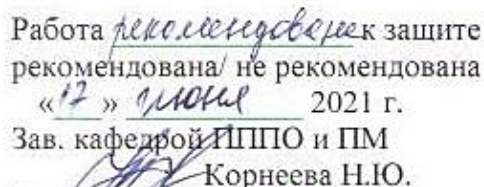 Работа рекомендована к защите
рекомендована/ не рекомендована
«17» июня 2021 г.
Зав. кафедрой ППО и ПМ
Корнеева Н.Ю.